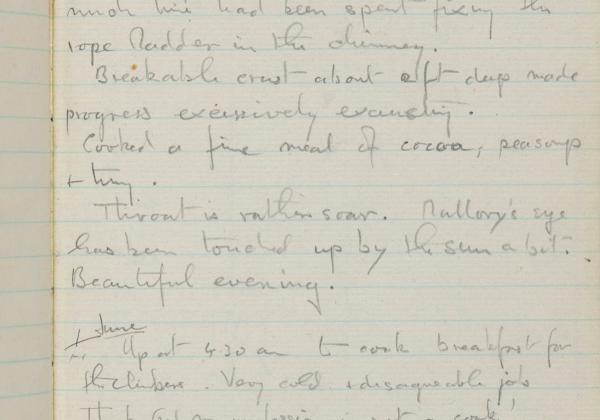 much time had been spent fixing the
rope ladder in the chimney.
Breakable crust about a ft deep made
progress excessively exhausting.
Cooked a fine meal of cocoa, peasoup
+ tung.
Throat is rather soar. Mallory's eye
has been touched up by the sun a bit.
Beautiful evening.
June
Up at 4.30 am to cook breakfast for
the climbers. Very cold + disagreeable job
Thank God my profession is not a cook!